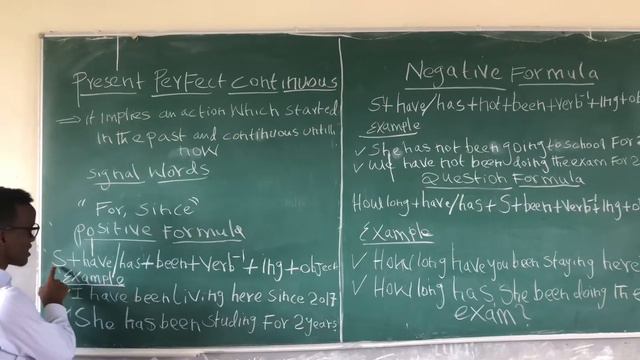 Present Perfect Continuous
⇒ it implies an action which started
in the past and continuous untill
now
signal words
"For, since"
positive Formula
S+have/has+been+verb-1+Ing+object
Example
I have been living here since 2017
She has been studing For 2 years
Negative Formula
S+have/has+not+been+verb-1+Ing+o
Example
✓ She has not been going to school For 2
✓ we have not been doing the exam For 2
Question Formula
How long+have/has+S+been+verb-1+Ing+o
Example
✓ How long have you been staying here
✓ How long has she been doing the
exam?